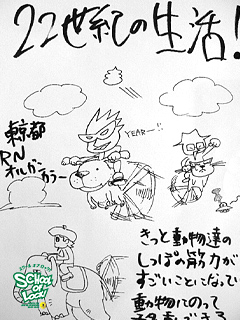 22世紀の生活!
YEAR—!!
東京都
RN
オルガンカラー
きっと動物達の
しっぽの筋力が
すごいことになってい
動物にのって
SCHOOL OF LOCK!